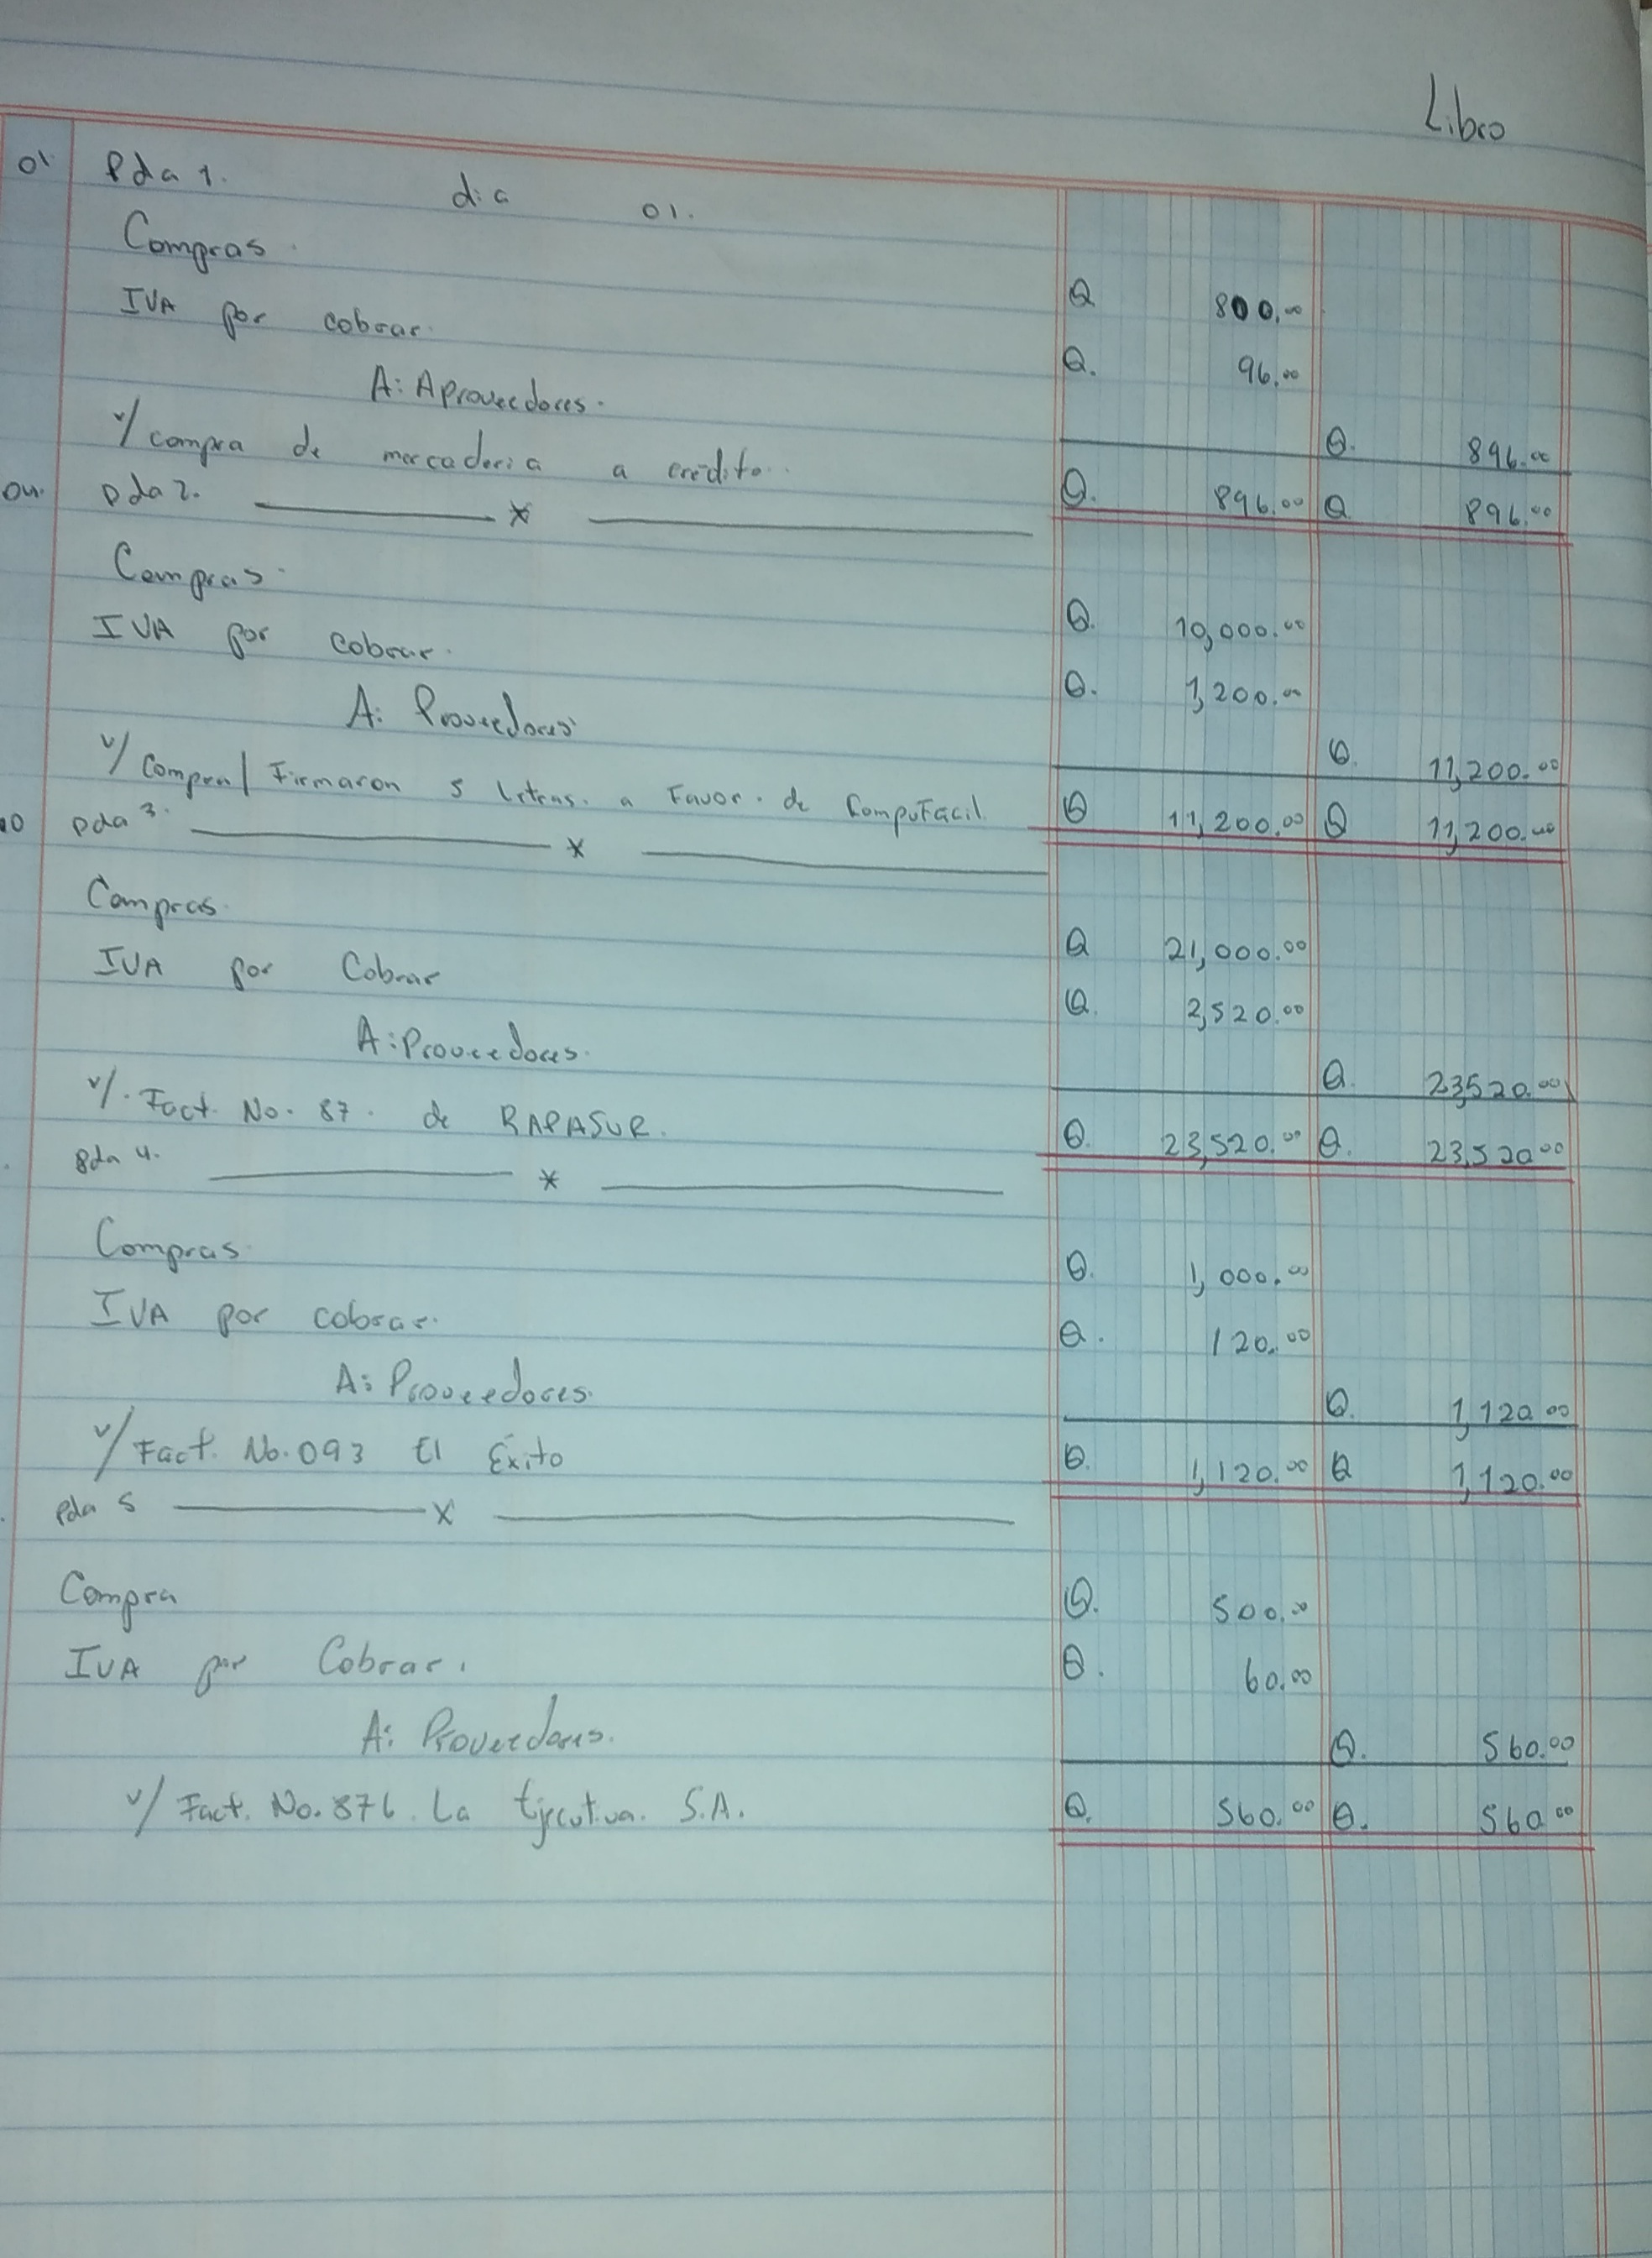 Libro
01. Pda 1. dia 01.
Compras.
Q 800.00
IVA por cobrar.
Q. 96.00
A: Aproveedores.
Q. 896.00
v/ compra de mercaderia a crédito.
Q. 896.00 Q 896.00
04. Pda 2. *
Compras.
Q. 10,000.00
IVA por cobrar.
Q. 1,200.00
A: Proveedores
Q. 11,200.00
v/ Compra/ Firmaron 5 letras. a Favor. de CompuFacil
Q 11,200.00 Q 11,200.00
10 Pda 3. *
Compras.
Q 21,000.00
IVA por Cobrar
Q. 2,520.00
A: Proveedores.
Q. 23,520.00
v/. Fact. No. 87. de RAPASUR.
Q. 23,520.00 Q. 23,520.00
Pda 4. *
Compras.
Q. 1,000.00
IVA por cobrar.
Q. 120.00
A: Proveedores.
Q. 1,120.00
v/ Fact. No. 093 El Éxito
Q. 1,120.00 Q 1,120.00
Pda 5 x
Compra
Q. 500.00
IVA por Cobrar.
Q. 60.00
A: Proveedores.
Q. 560.00
v/ Fact. No. 876. La Ejecutiva. S.A.
Q. 560.00 Q. 560.00